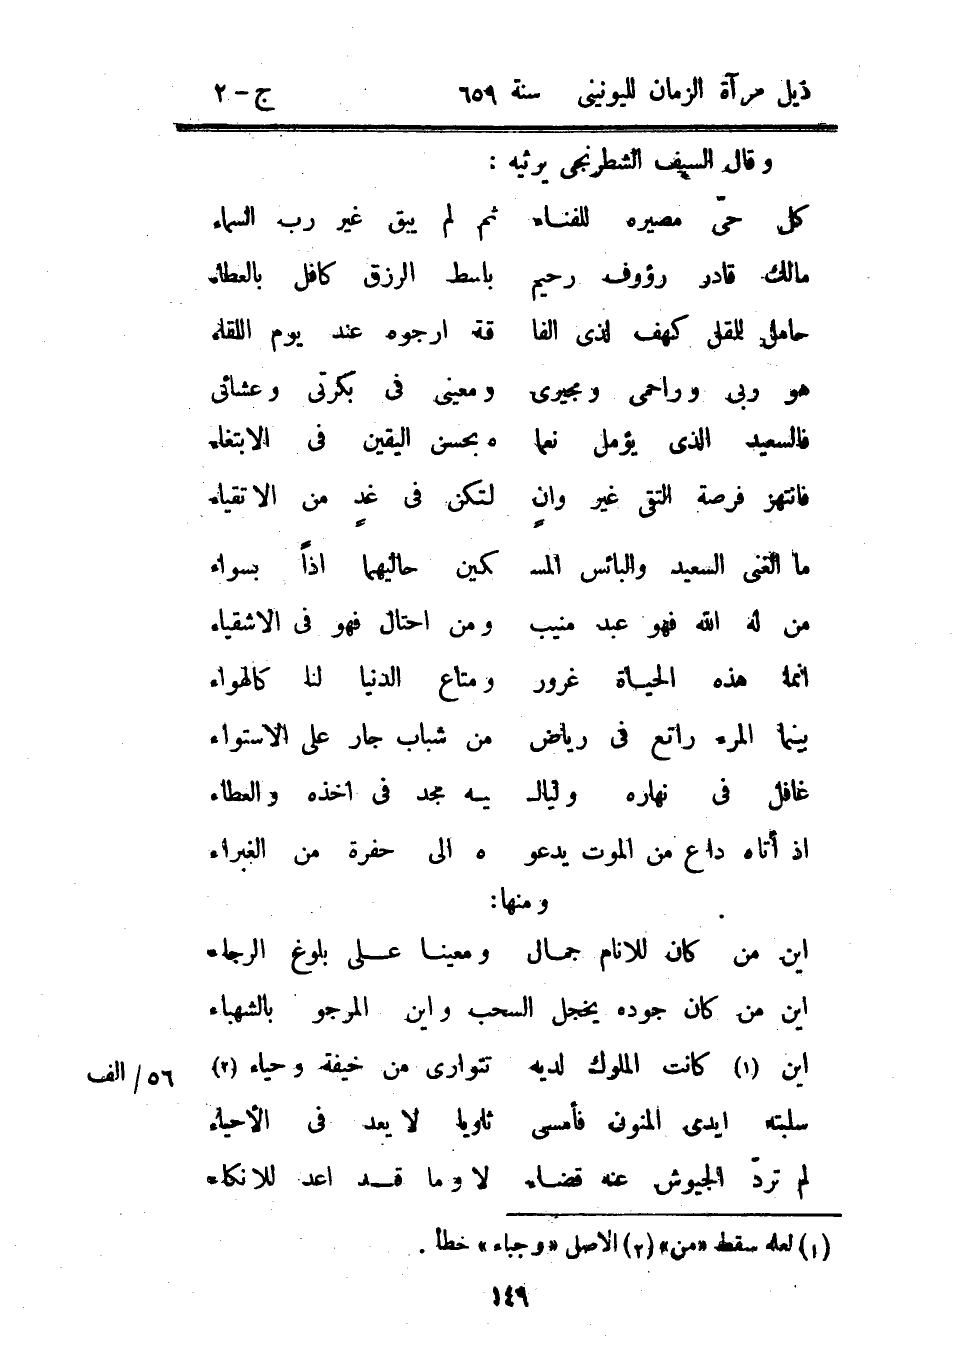 ذيل مرآة الزمان لليونينى سنة ٦٥٩ ج-٢
و قال السيف الشطرنجى يرثيه :
كل حىّ مصيره للفناء ثم لم يبق غير رب السماء
مالك قادر رؤوف رحيم باسط الرزق كافل بالعطاء
حامل للمقل كهف لذى الفا قة ارجوه عند يوم اللقاء
هو ربى و راحمى و مجيرى و معينى فى بكرتى و عشائى
فالسعيد الذى يؤمل نعما ه بحسن اليقين فى الابتغاء
فانتهز فرصة التقى غير وانٍ لتكن فى غدٍ من الاتقياء
ما الغنى السعيد والبائس المسـ ـكين حاليهما اذاً بسواء
من له الله فهو عبد منيب و من احتال فهو فى الاشقياء
انما هذه الحيـاة غرور و متاع الدنيا لنا كالهواء
بينما المرء راتع فى رياض من شباب جار على الاستواء
غافل فى نهاره و ليالـ يـه مجد فى اخذه و العطاء
اذ أتاه داع من الموت يدعو ه الى حفرة من الغبراء
و منها:
اين من كان للانام جمـالى و معينـا عـلى بلوغ الرجاء
اين من كان جوده يخجل السحب و اين المرجو بالشهباء
اين (١) كانت الملوك لديه تتوارى من خيفة و حياء (٢)
٥٦/ الف
سلبته ايدى المنون فأمسى ثاويا لا يعد فى الأحياء
لم تردّ الجيوش عنه قضـاء لا و ما قـد اعد للانكاء
(١) لعله سقط «من» (٢) الاصل «و جباء» خطأ .
١٤٩